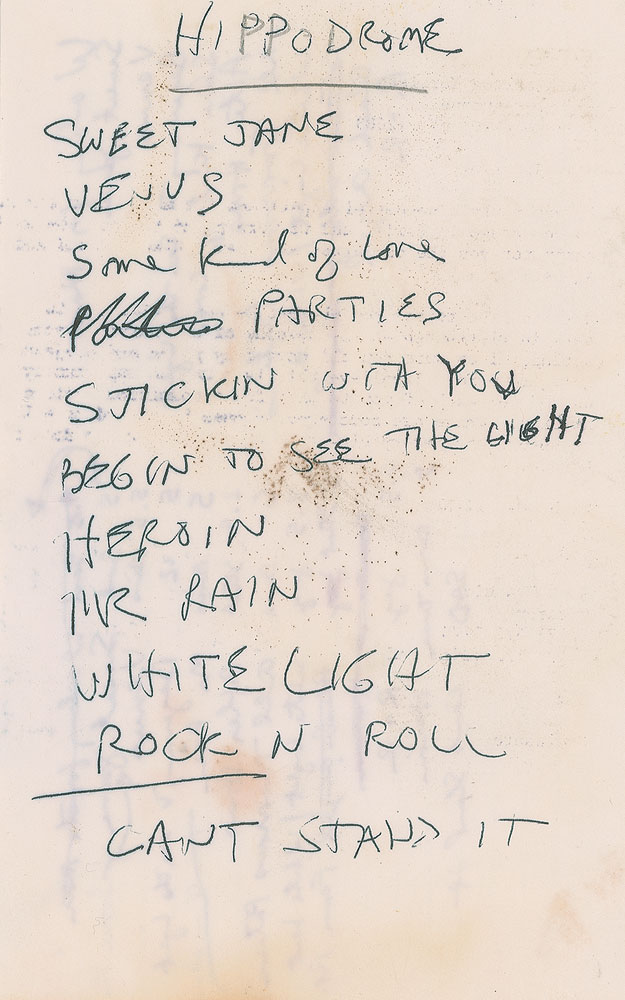 HIPPODROME
SWEET JANE
VENUS
Some Kind of Love
PARTIES
STICKIN WITH YOU
BEGIN TO SEE THE LIGHT
HEROIN
MR RAIN
WHITE LIGHT
ROCK N ROLL
CANT STAND IT